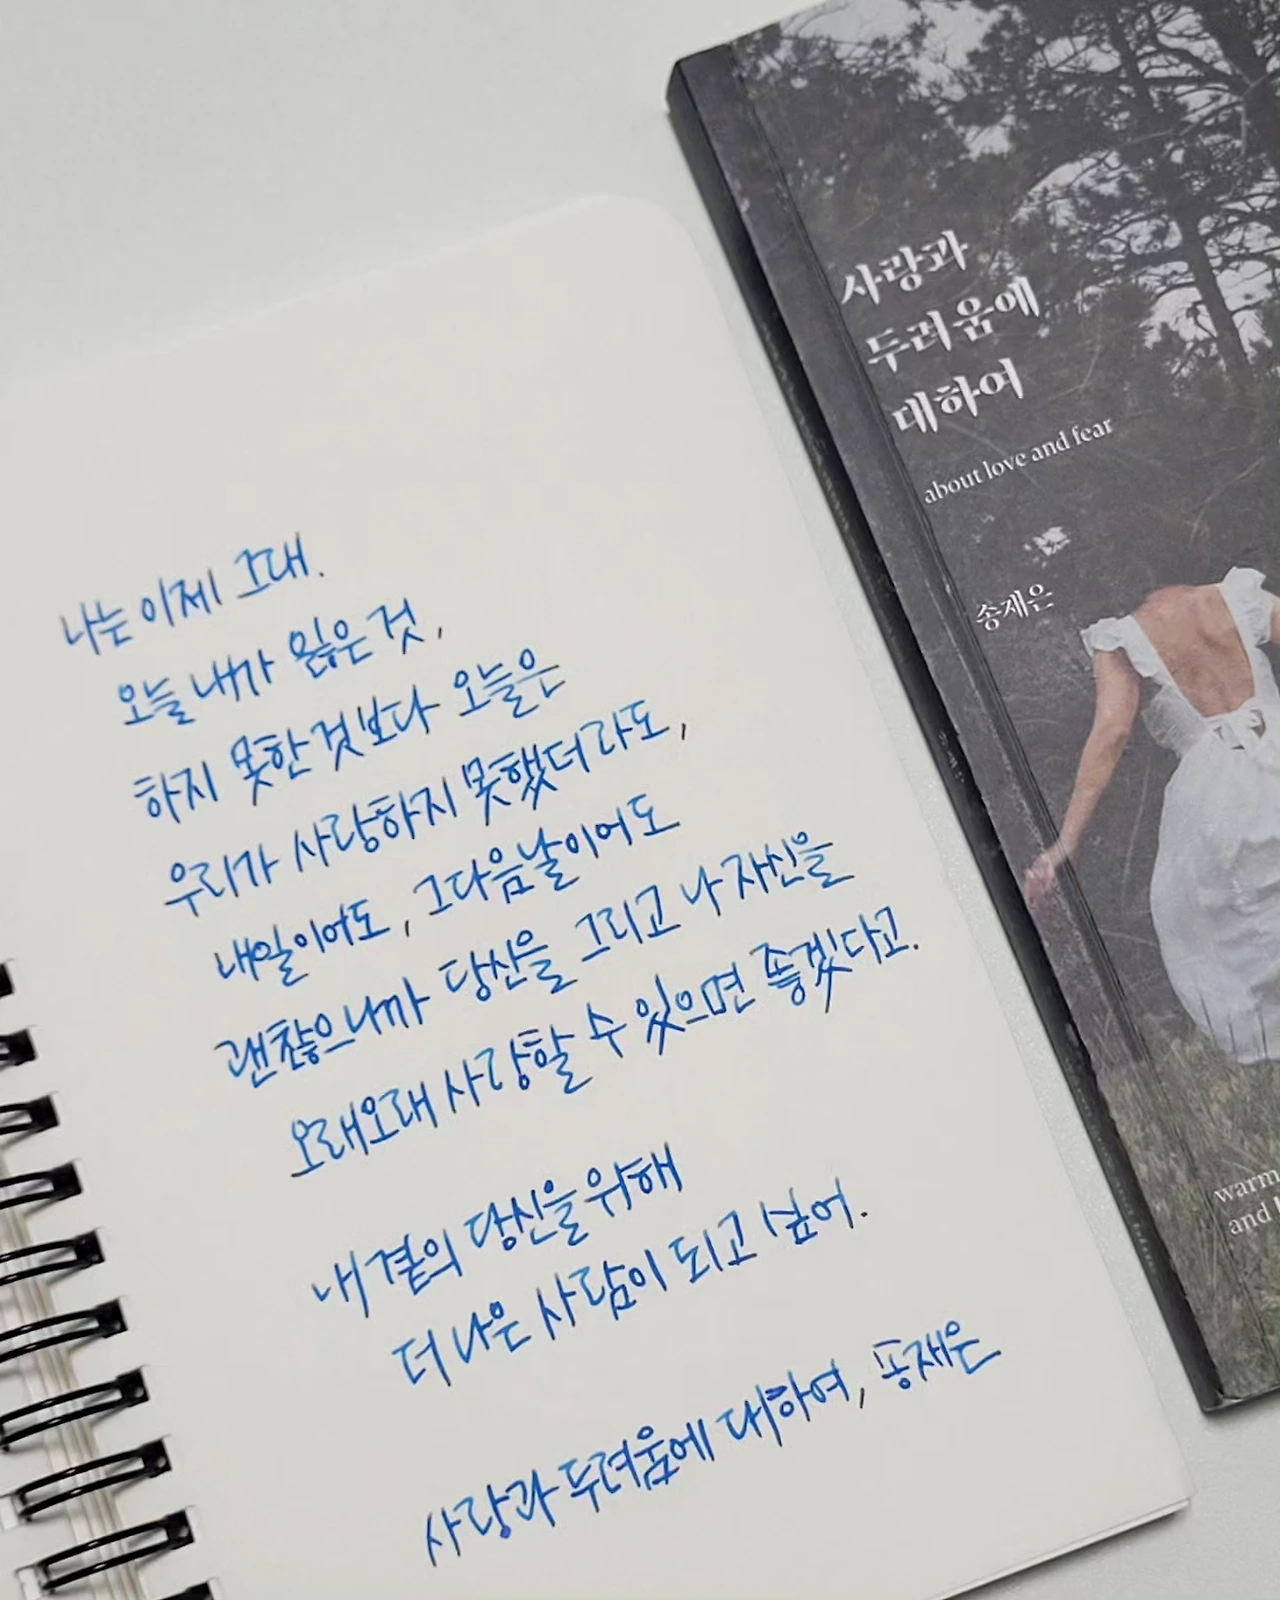 나는 이제 그대.
오늘 내가 잃은 것,
하지 못한 것보다 오늘은
우리가 사랑하지 못했더라도,
내일이어도, 그다음날이어도
괜찮으니까 당신을 그리고 나 자신을
오래오래 사랑할 수 있으면 좋겠다고.
내 곁의 당신을 위해
더 나은 사람이 되고 싶어.
사랑과 두려움에 대하여, 송재은
사랑과
두려움에
대하여
about love and fear
송재은
warm
and